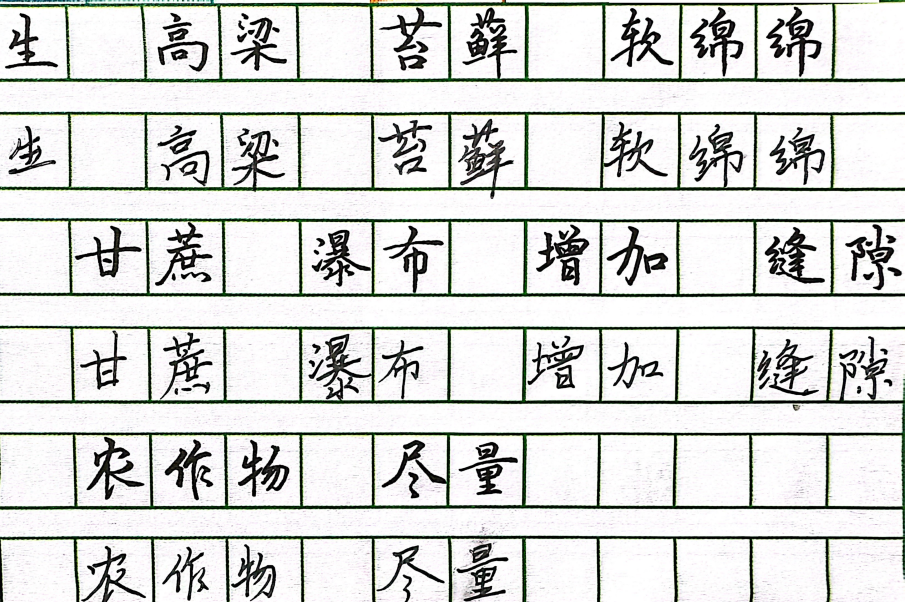 生 高梁 苔藓 软绵绵
生 高梁 苔藓 软绵绵
甘蔗 瀑布 增加 缝隙
甘蔗 瀑布 增加 缝隙
农作物 尽量
农作物 尽量